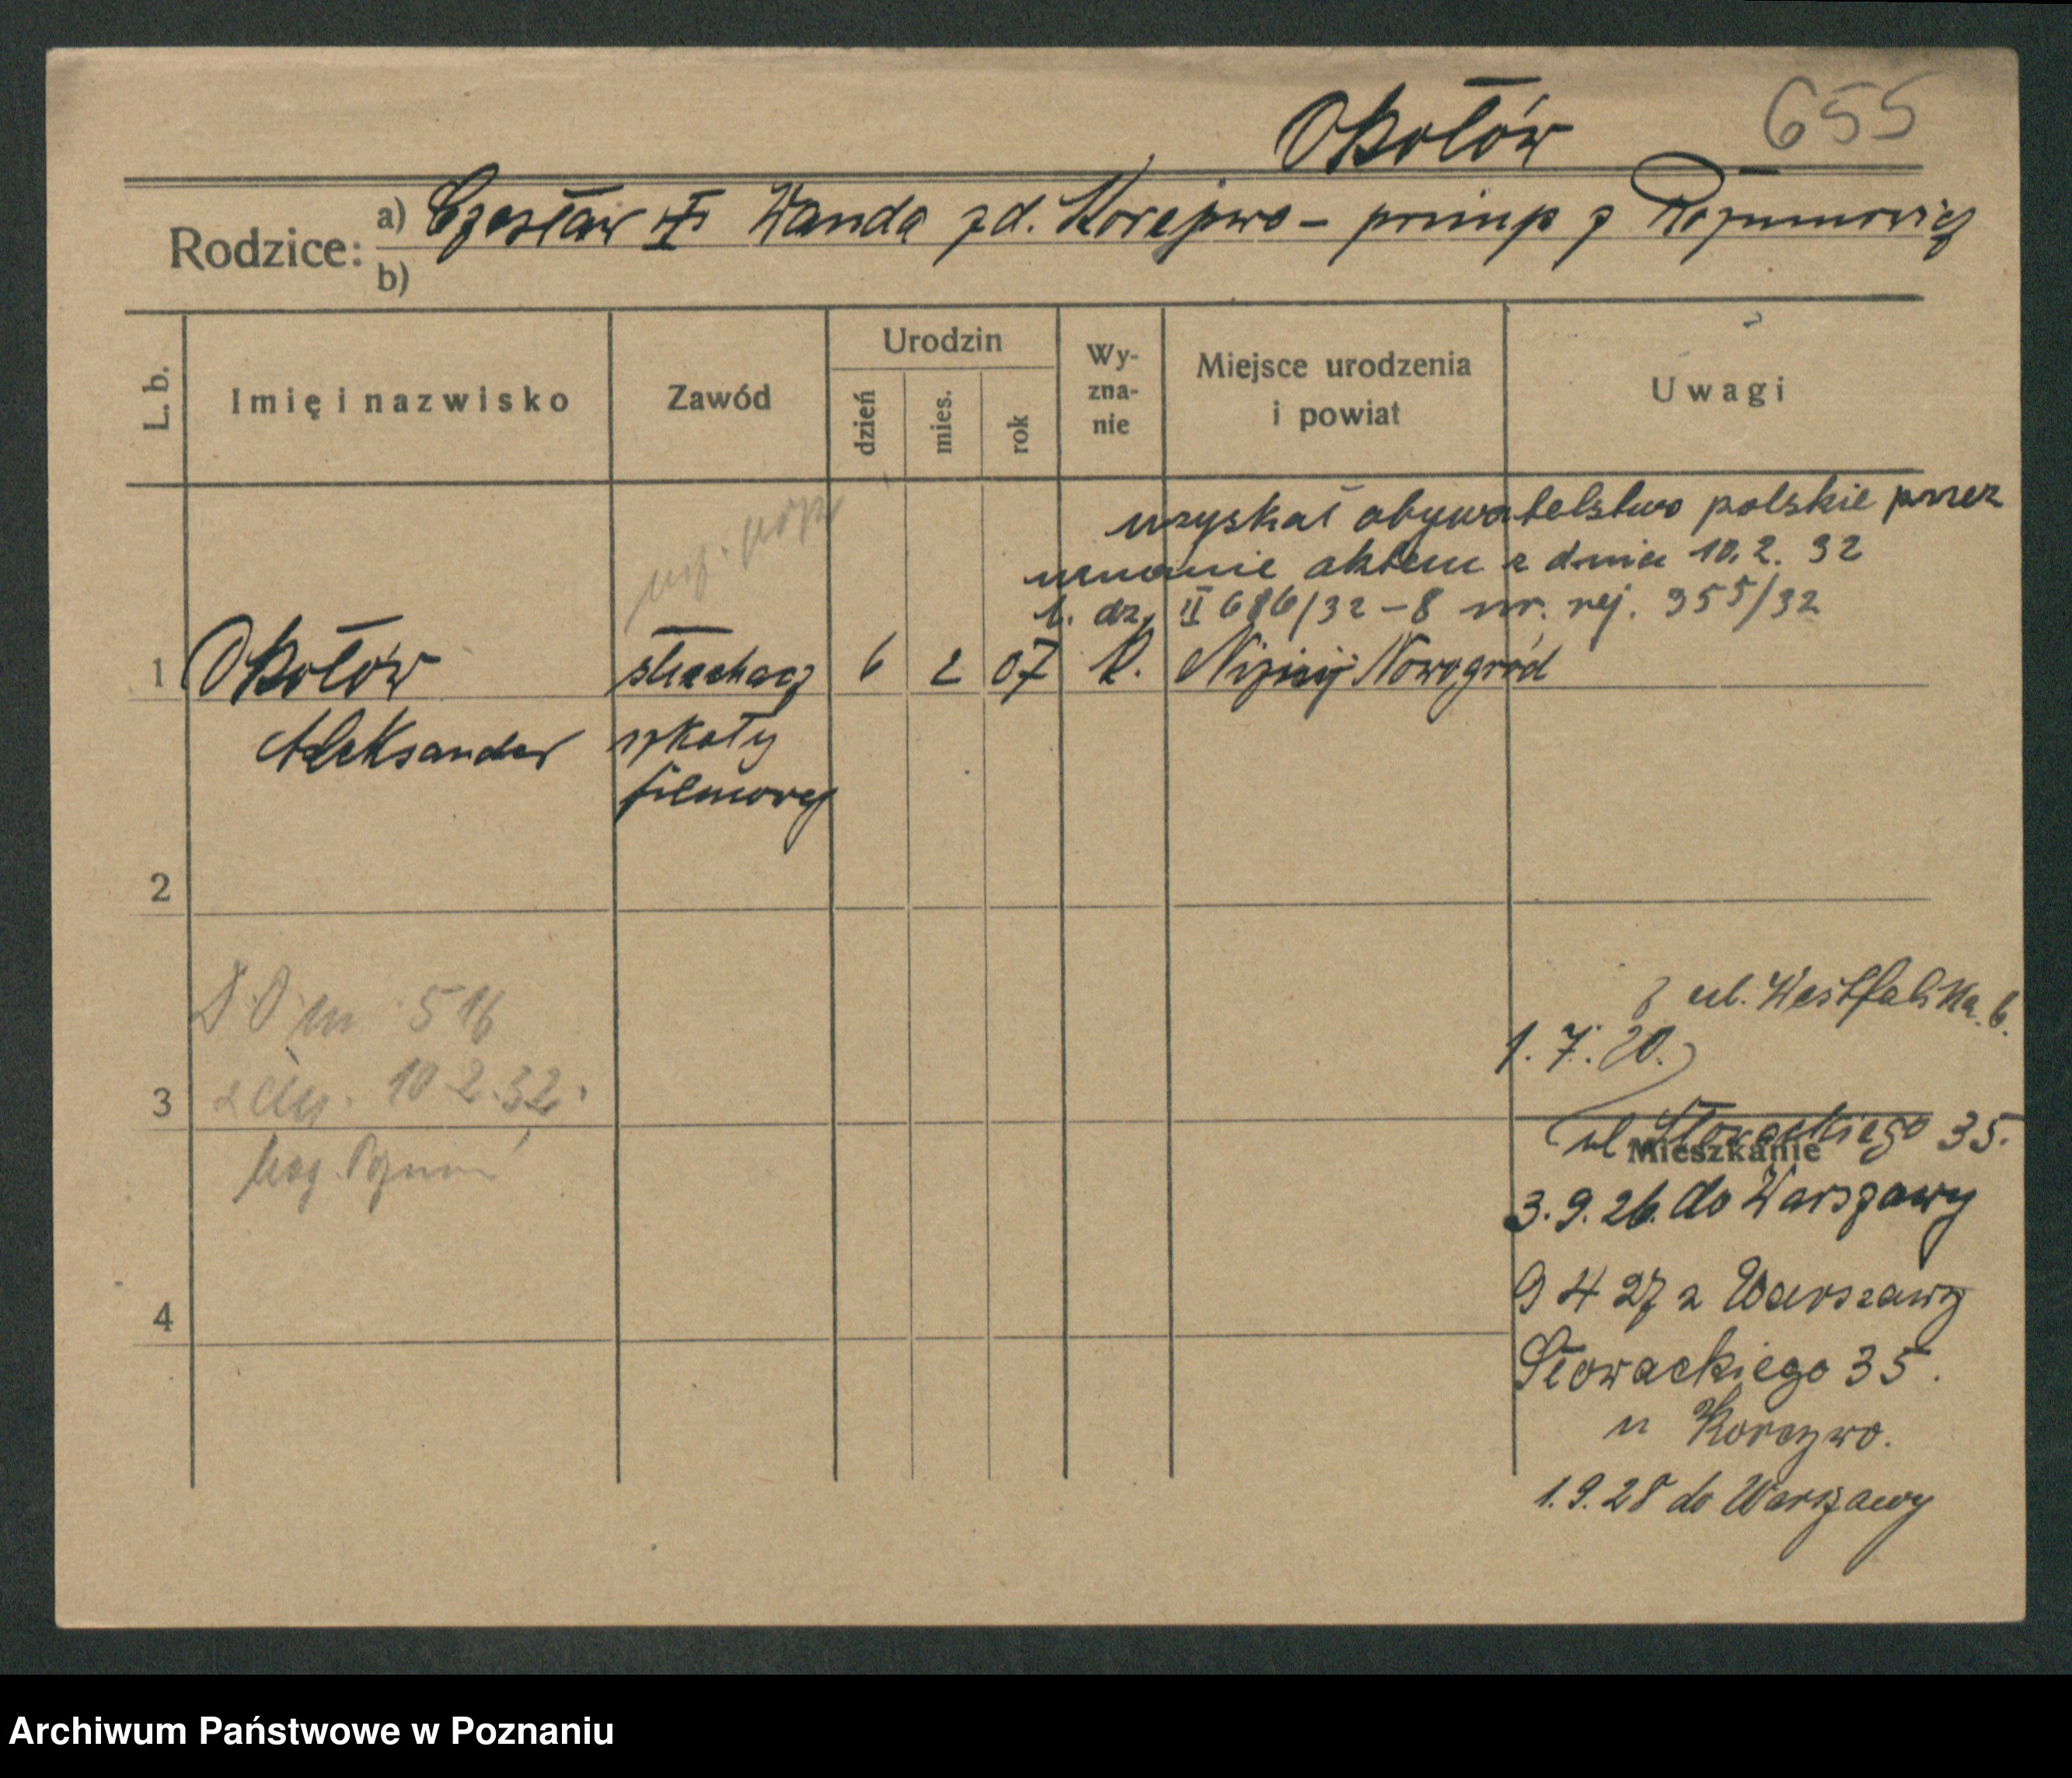 Okołów 655
Rodzice: a) Czesław i Wanda zd. Korejwo – primp z Rozumowicz
b)
L. b. Imię i nazwisko Zawód Urodzin dzień mies. rok Wy-zna-nie Miejsce urodzenia i powiat Uwagi
uzyskał obywatelstwo polskie przez
uznanie aktem z dnia 10.2.32
l. dz. II 686/32 – 8 nr. rej. 355/32
1 Okołów słuchacz 6 2 07 R. Niżnij Nowogród
Aleksander szkoły
filmowej
2
D O nr 516
z dn. 10.2.32.
3
Mag. Poznań
z ul. Westfalska 6.
1.7.20.
ul Słowackiego 35.
Mieszkanie
3.9.26. do Warszawy
9 4 27 z Warszawy
4
Słowackiego 35.
u Korejwo.
1.9.28 do Warszawy
Archiwum Państwowe w Poznaniu